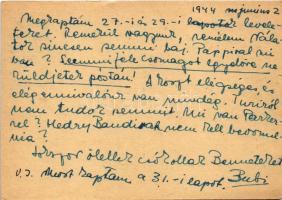 1944 június 2
Megkaptam 27.-i és 29.-i leveleteket. Remekül vagyunk, remélem Nálatok
sincsen semmi baj. Pappival mi
van? Semmiféle csomagot egyelőre ne
küldjetek postán! A koszt elégséges és
elég ennivalónk van mindég. Turiról
nem tudok semmit. Mi van
Hedry Bandinak nem kell bevonulnia?
Sokszor ölellek csókollak Benneteket
U.I. Most kaptam a 31.-i lapot. Bubi